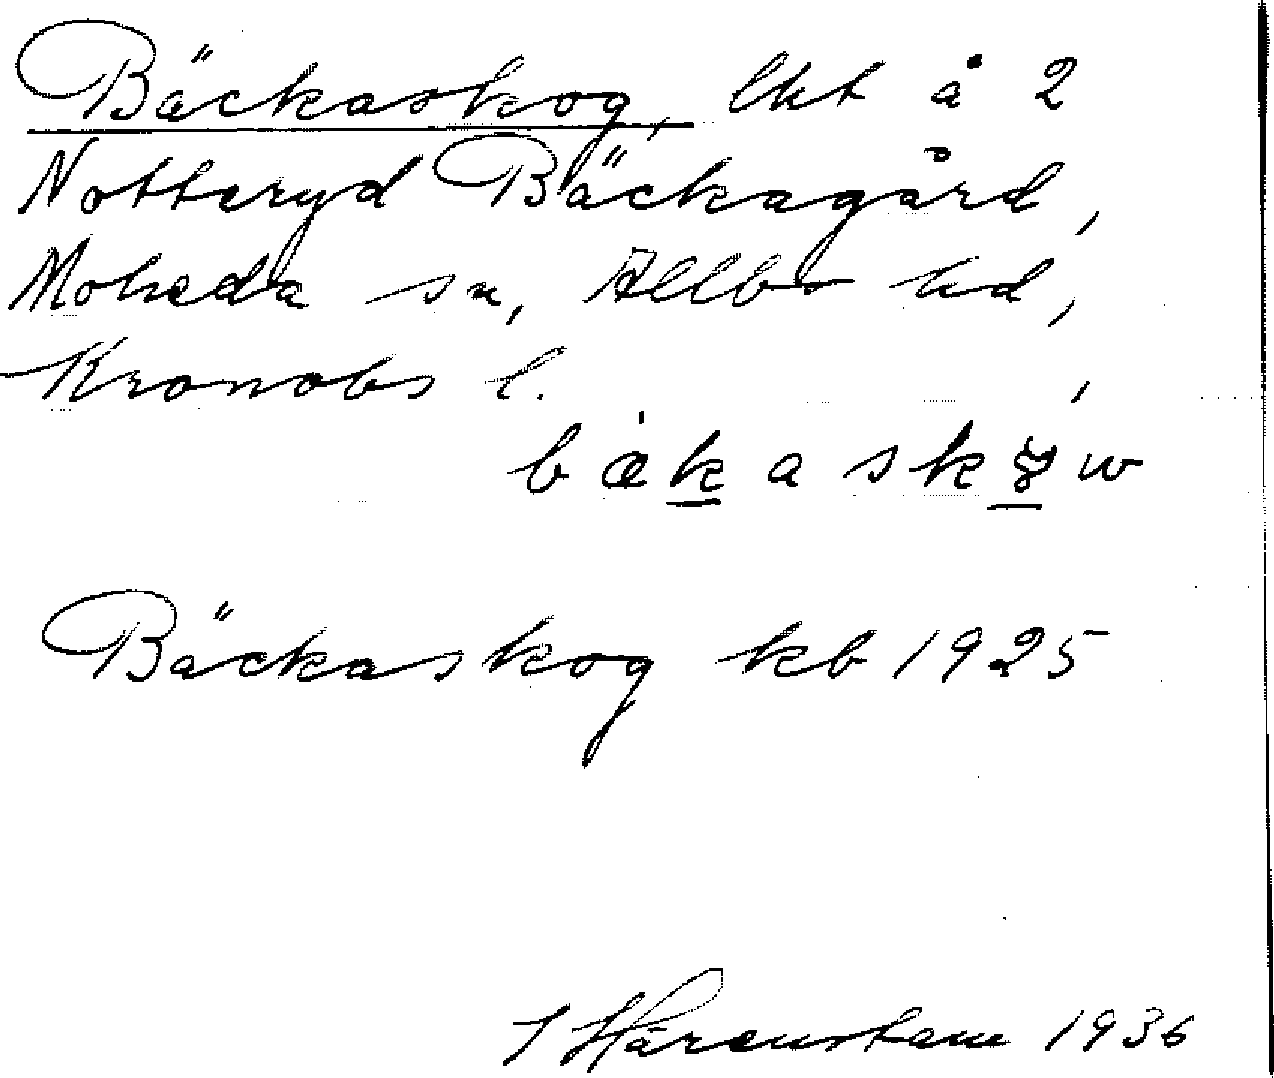 Bäckaskog, lht å 2
Notteryd Bäckagård,
Moheda sn, Allbo hd,
Kronobs l.
Bäckaskog kb 1925
J Härenstam 1936